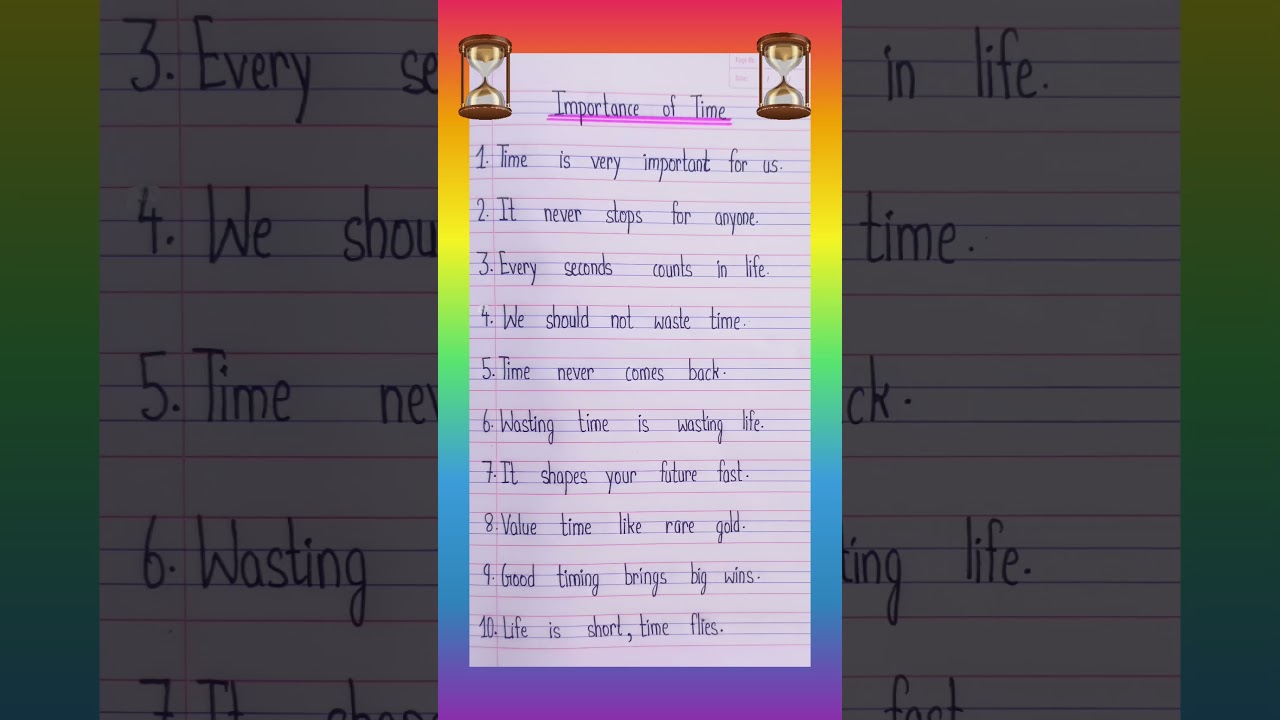 Page No.
Date:
Importance of Time
1. Time is very important for us.
2. It never stops for anyone.
3. Every seconds counts in life.
4. We should not waste time.
5. Time never comes back.
6. Wasting time is wasting life.
7. It shapes your future fast.
8. Value time like rare gold.
9. Good timing brings big wins.
10. Life is short, time flies.